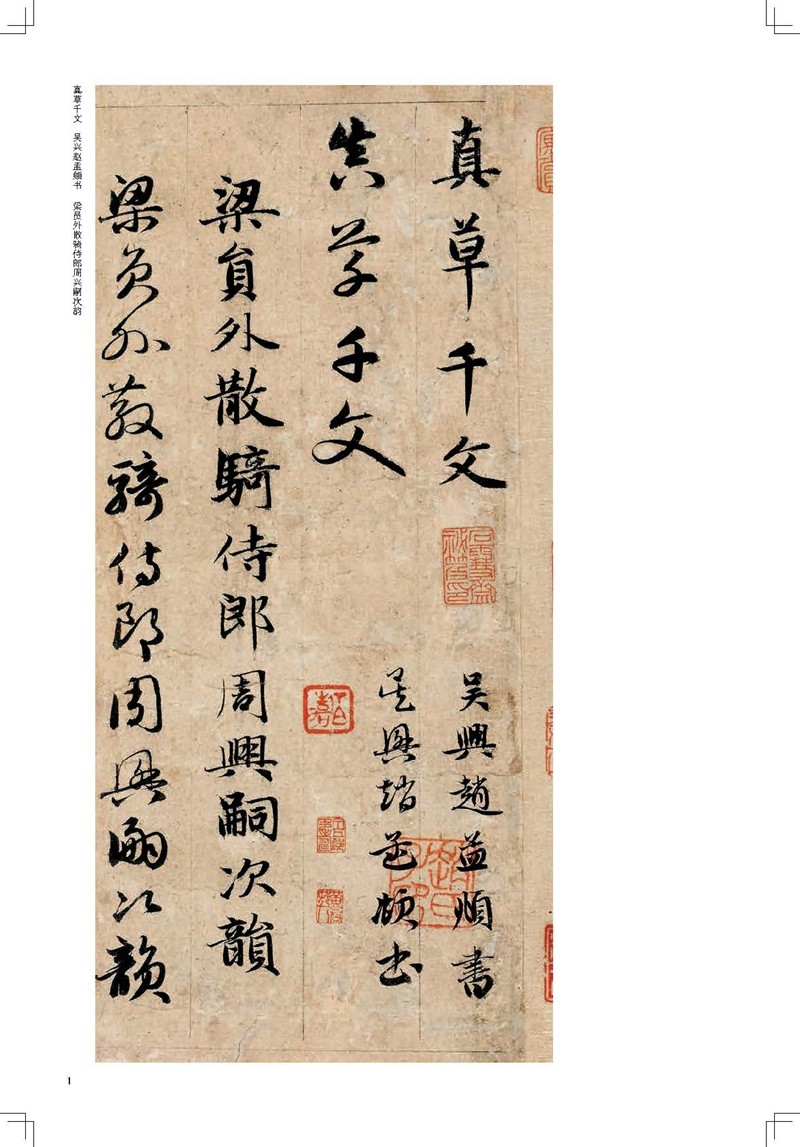 真草千文 吴興趙孟頫書
真草千文 吴興趙孟頫書
梁員外散騎侍郎周興嗣次韻
梁員外散騎侍郎周興嗣次韻
真草千文 吴兴赵孟頫书 梁员外散骑侍郎周兴嗣次韵
1